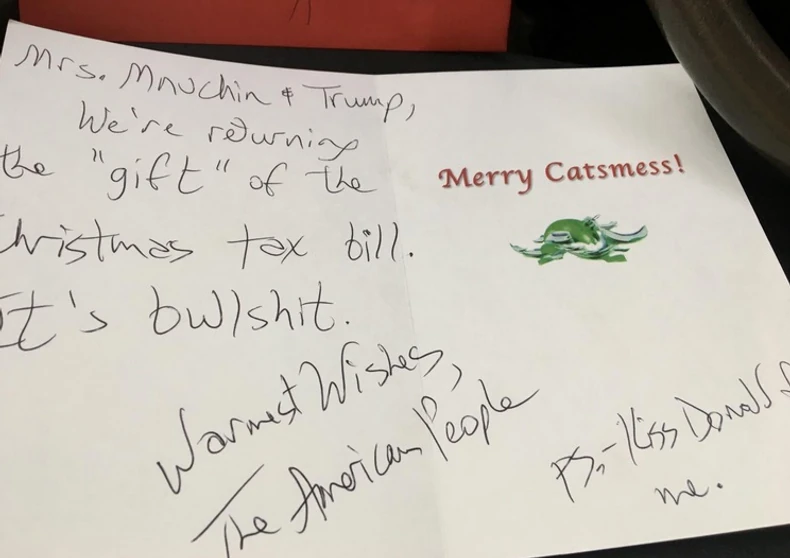 Mrs. Mnuchin & Trump,
We're returning
the "gift" of the
Christmas tax bill.
It's bullshit.
Warmest Wishes,
The American People
Merry Catsmess!
P.S. - Kiss Donald
me.